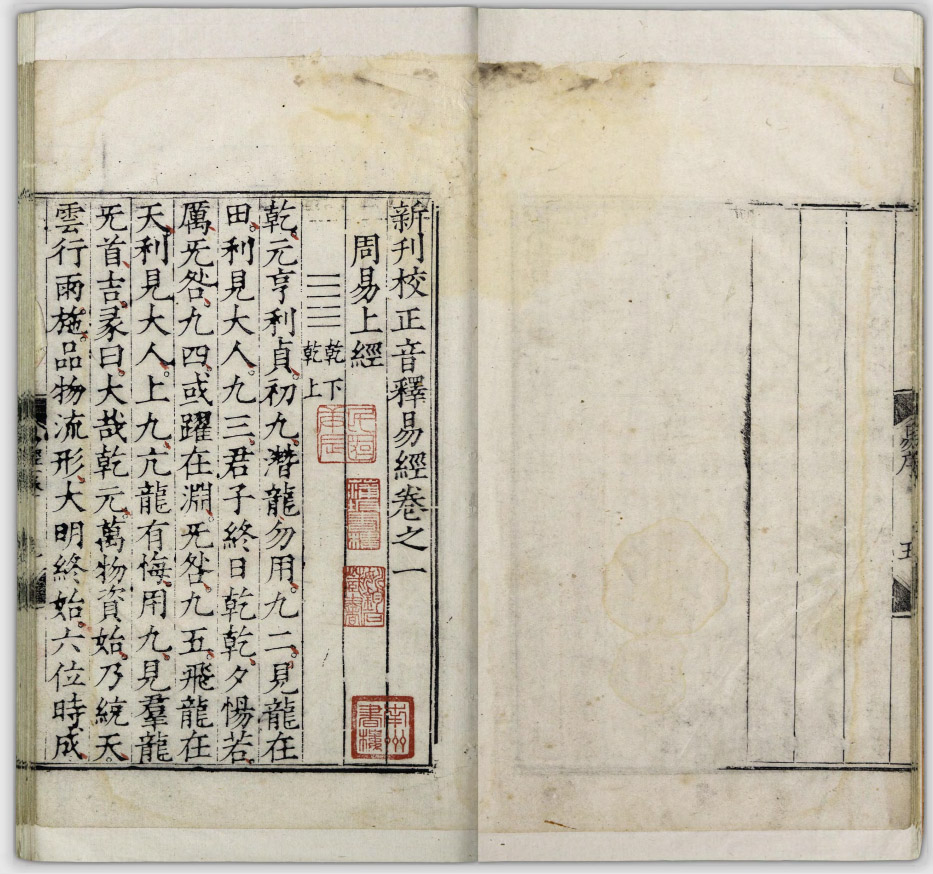 新刊校正音釋易經卷之一
周易上經
☰☰
乾下
乾上
乾元亨利貞初九潛龍勿用九二見龍在
田利見大人九三君子終日乾乾夕惕若
厲旡咎九四或躍在淵旡咎九五飛龍在
天利見大人上九亢龍有悔用九見羣龍
旡首吉彖曰大哉乾元萬物資始乃統天
雲行雨施品物流形大明終始六位時成
庚辰
南州書樓
易序
五